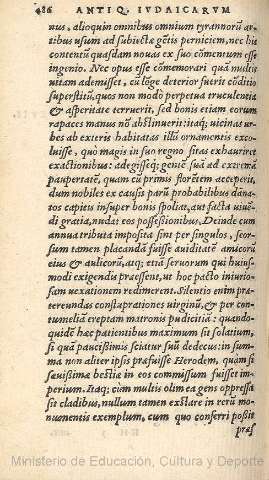 486 ANTIQ. IVDAICARVM
nus, alioquin omnibus omnium tyrannorũ ar-
tibus usum ad subiectæ gẽtis perniciem, nec his
contentũ quasdam nouas ex suo cõmentum esse
ingenio. Nec opus esse cõmemorari quã multis
uitam ademisset, cũ lõge deterior fuerit cõditio
superstitũ, quos non modo perpetua truculentia
& asperitate terruerit, sed bonis etiam eorum
rapaces manus nõ abstinuerit: itaq; uicinas ur-
bes ab exteris habitatas illũ ornamentis excol
uisse, quo magis in suo regno sitas exhauriret
exactionibus: adegisseq; gentẽ suã ad extremã
paupertatẽ, quam cũ primus florẽtem acceperit,
dum nobiles ex causis parũ probabilibus dãna-
tos capitis insuper bonis spoliat, aut facta uiuẽ-
di gratia, nudat eos possessionibus. Deinde cum
annua tributa imposita sint per singulos, seor-
sum tamen placandã fuisse auiditatẽ amicorũ
eius & aulicorũ, atq; etiã seruorum qui huius-
modi exigendis præessent, ut hoc pacto iniurio-
sam uexationem redimerent. Silentio enim præ-
tereundas constuprationes virginũ, & per con-
tumeliã ereptam matronis pudicitiã: quando-
quidẽ hæc patientibus maximum sit solatium,
si quã paucissimis sciatur suũ dedecus: in sum-
ma non aliter ipsis præfuisse Herodem, quam si
sæuissima bestia in eos commissum fuisset im-
perium. Itaq; cum multis olim ea gens oppressa
sit cladibus, nullum tamen exstare in rerũ mo-
numentis exemplum, cum quo conferri possit
præs
Ministerio de Educación, Cultura y Deporte